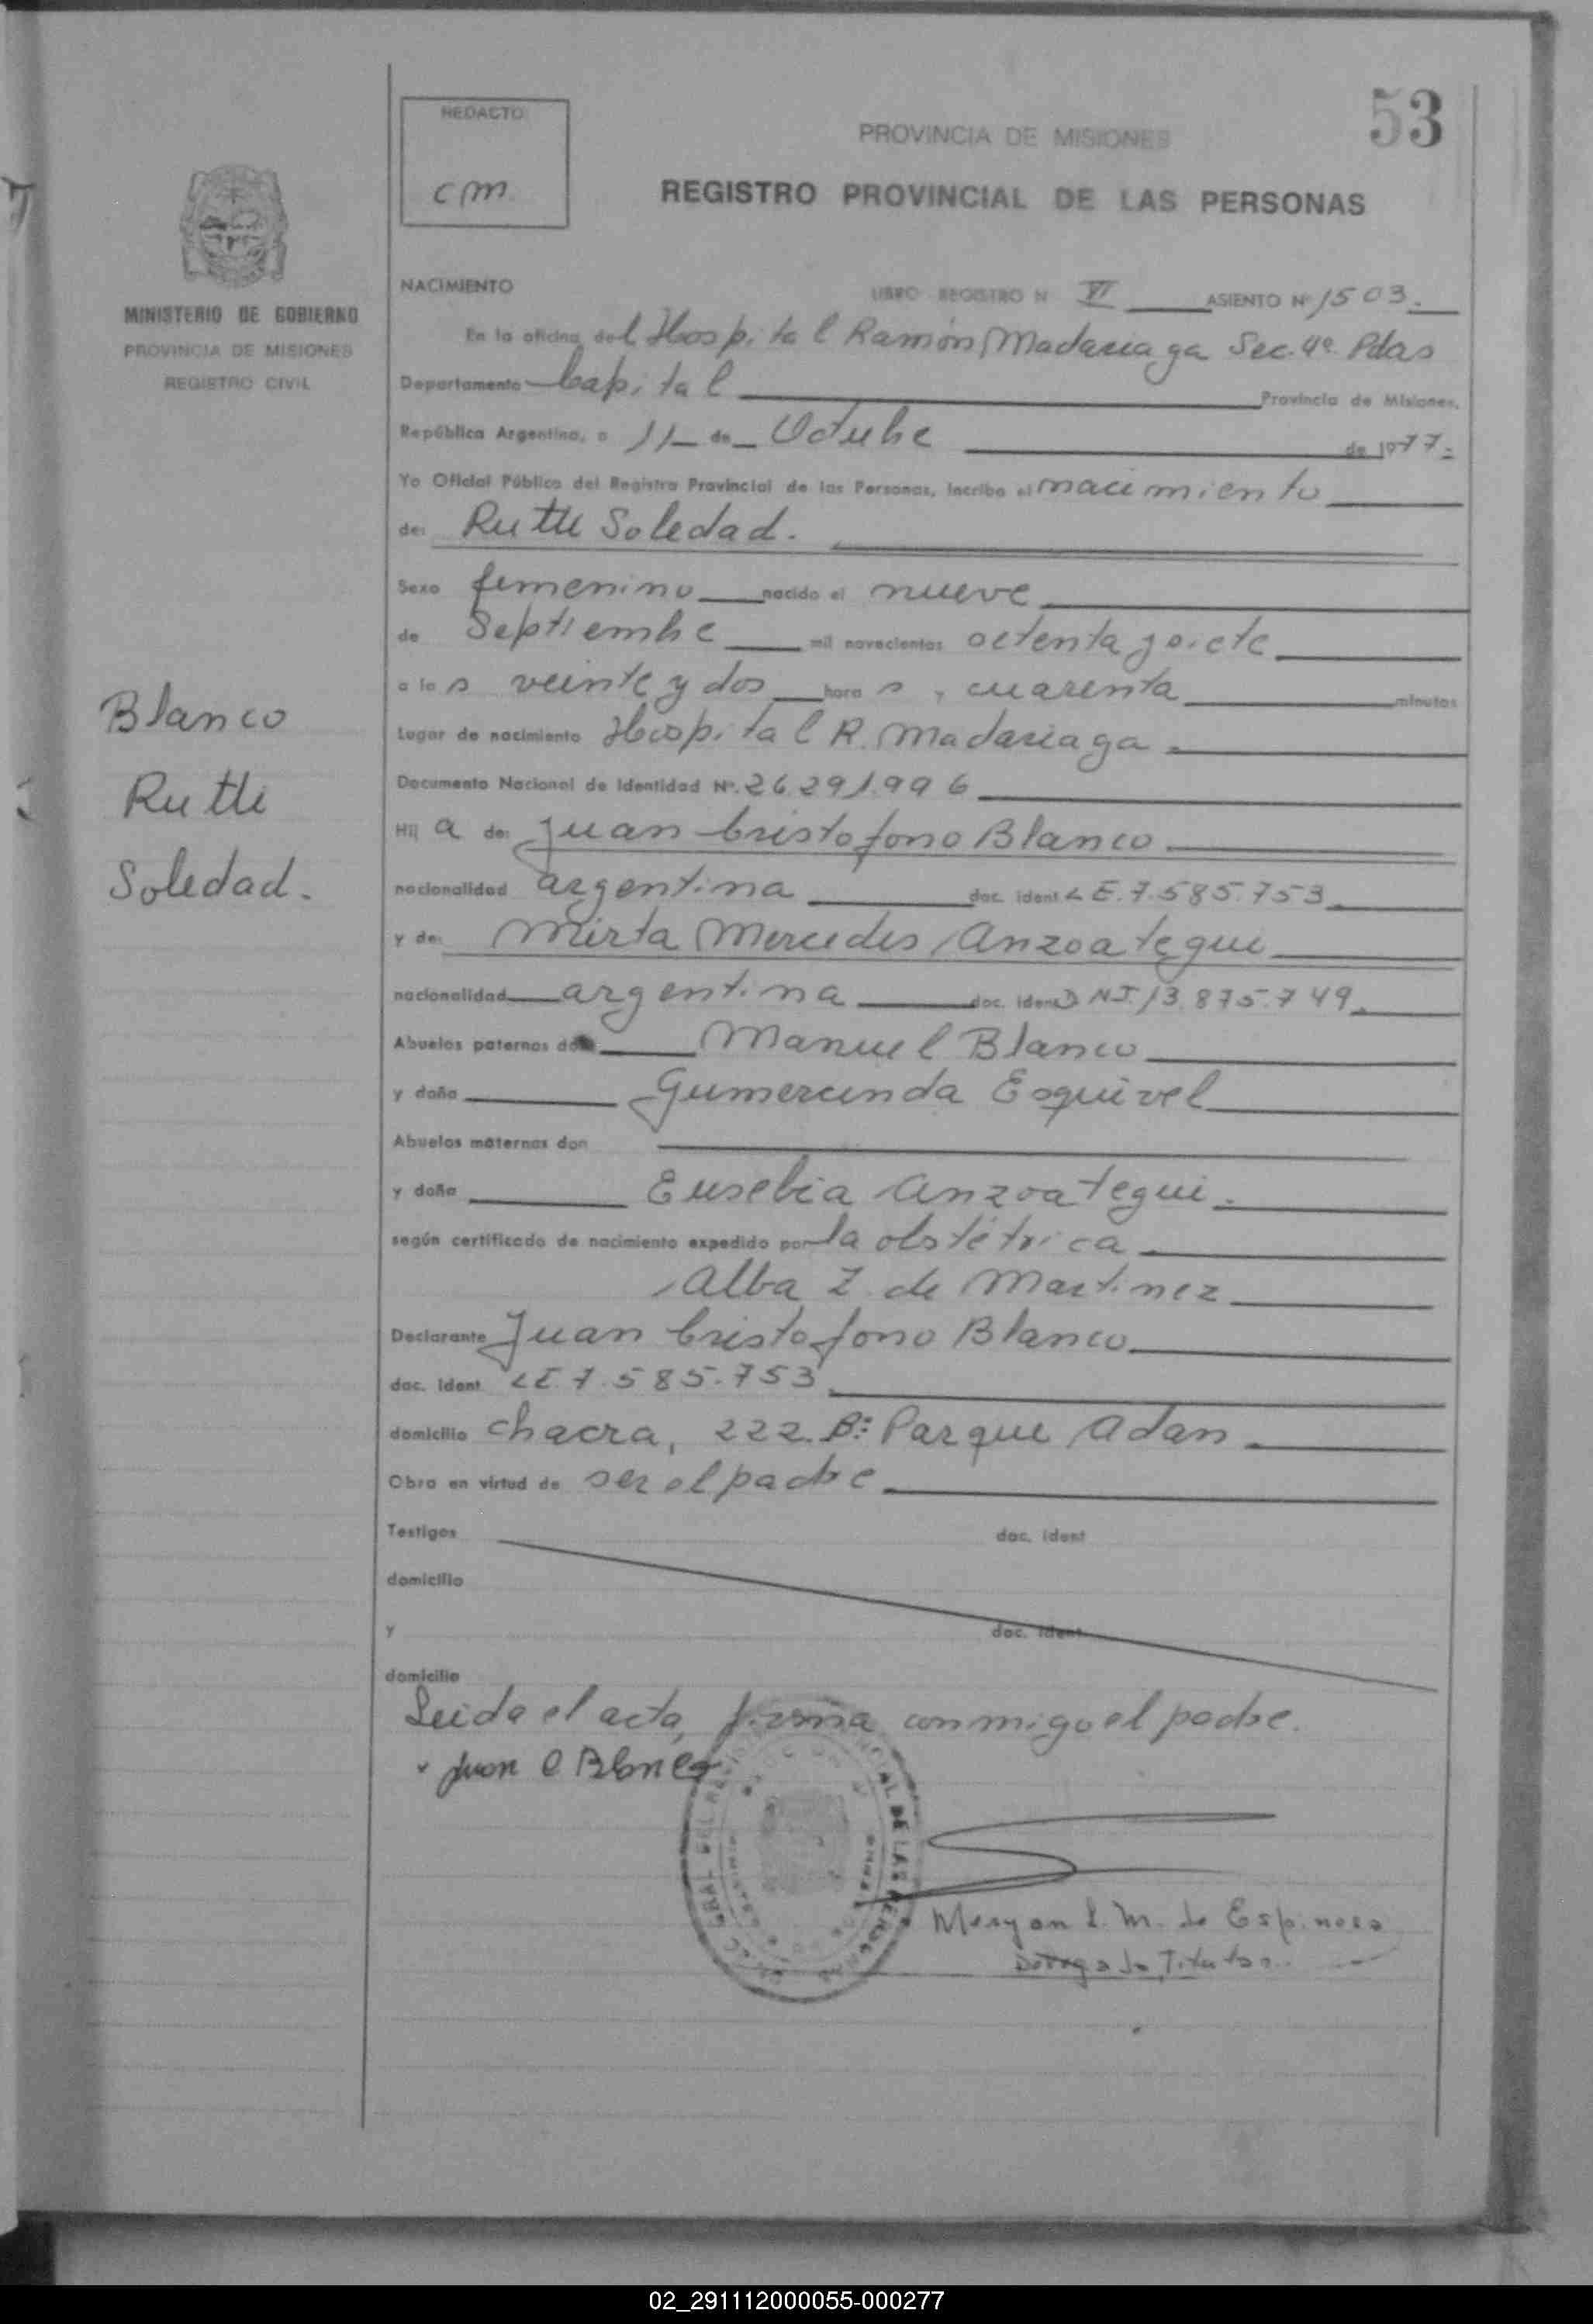 53
REDACTO
cm.
PROVINCIA DE MISIONES
REGISTRO PROVINCIAL DE LAS PERSONAS
MINISTERIO DE GOBIERNO
PROVINCIA DE MISIONES
REGISTRO CIVIL
NACIMIENTO LIBRO REGISTRO N VI ASIENTO Nº 1503.
En la oficina del Hospital Ramón Madariaga Sec. 4ª. Pdas
Departamento Capital Provincia de Misiones,
República Argentina, a 11 de Octubre de 1977.
Yo Oficial Público del Registro Provincial de las Personas, inscribo el nacimiento
de: Ruth Soledad.
Sexo femenino nacido el nueve
de Septiembre mil novecientos setenta y siete
a las veinte y dos horas, cuarenta minutos
Lugar de nacimiento Hospital R. Madariaga
Documento Nacional de Identidad Nº. 26.291.996
Hija de: Juan Cristofono Blanco
nacionalidad argentina doc. ident LE. 7.585.753
y de: Mirta Mercedes Anzoategui
nacionalidad argentina doc. ident DNI. 13.875.749
Abuelos paternos don Manuel Blanco
y doña Gumercinda Esquivel
Abuelos maternos don
y doña Eusebia Anzoategui.
según certificado de nacimiento expedido por la obstétrica
Alba Z. de Martinez
Declarante Juan Cristofono Blanco
doc. ident LE. 7.585.753
domicilio chacra, 222. Bº: Parque Adan
Obra en virtud de ser el padre
Testigos doc. ident
domicilio
y doc. ident
domicilio
Leida el acta, firma conmigo el padre.
Juan C Blanco
DE LAS PERSONAS
Meryan L. M. de Espinosa
Titular
Blanco
Ruth
Soledad.
02_291112000055-000277